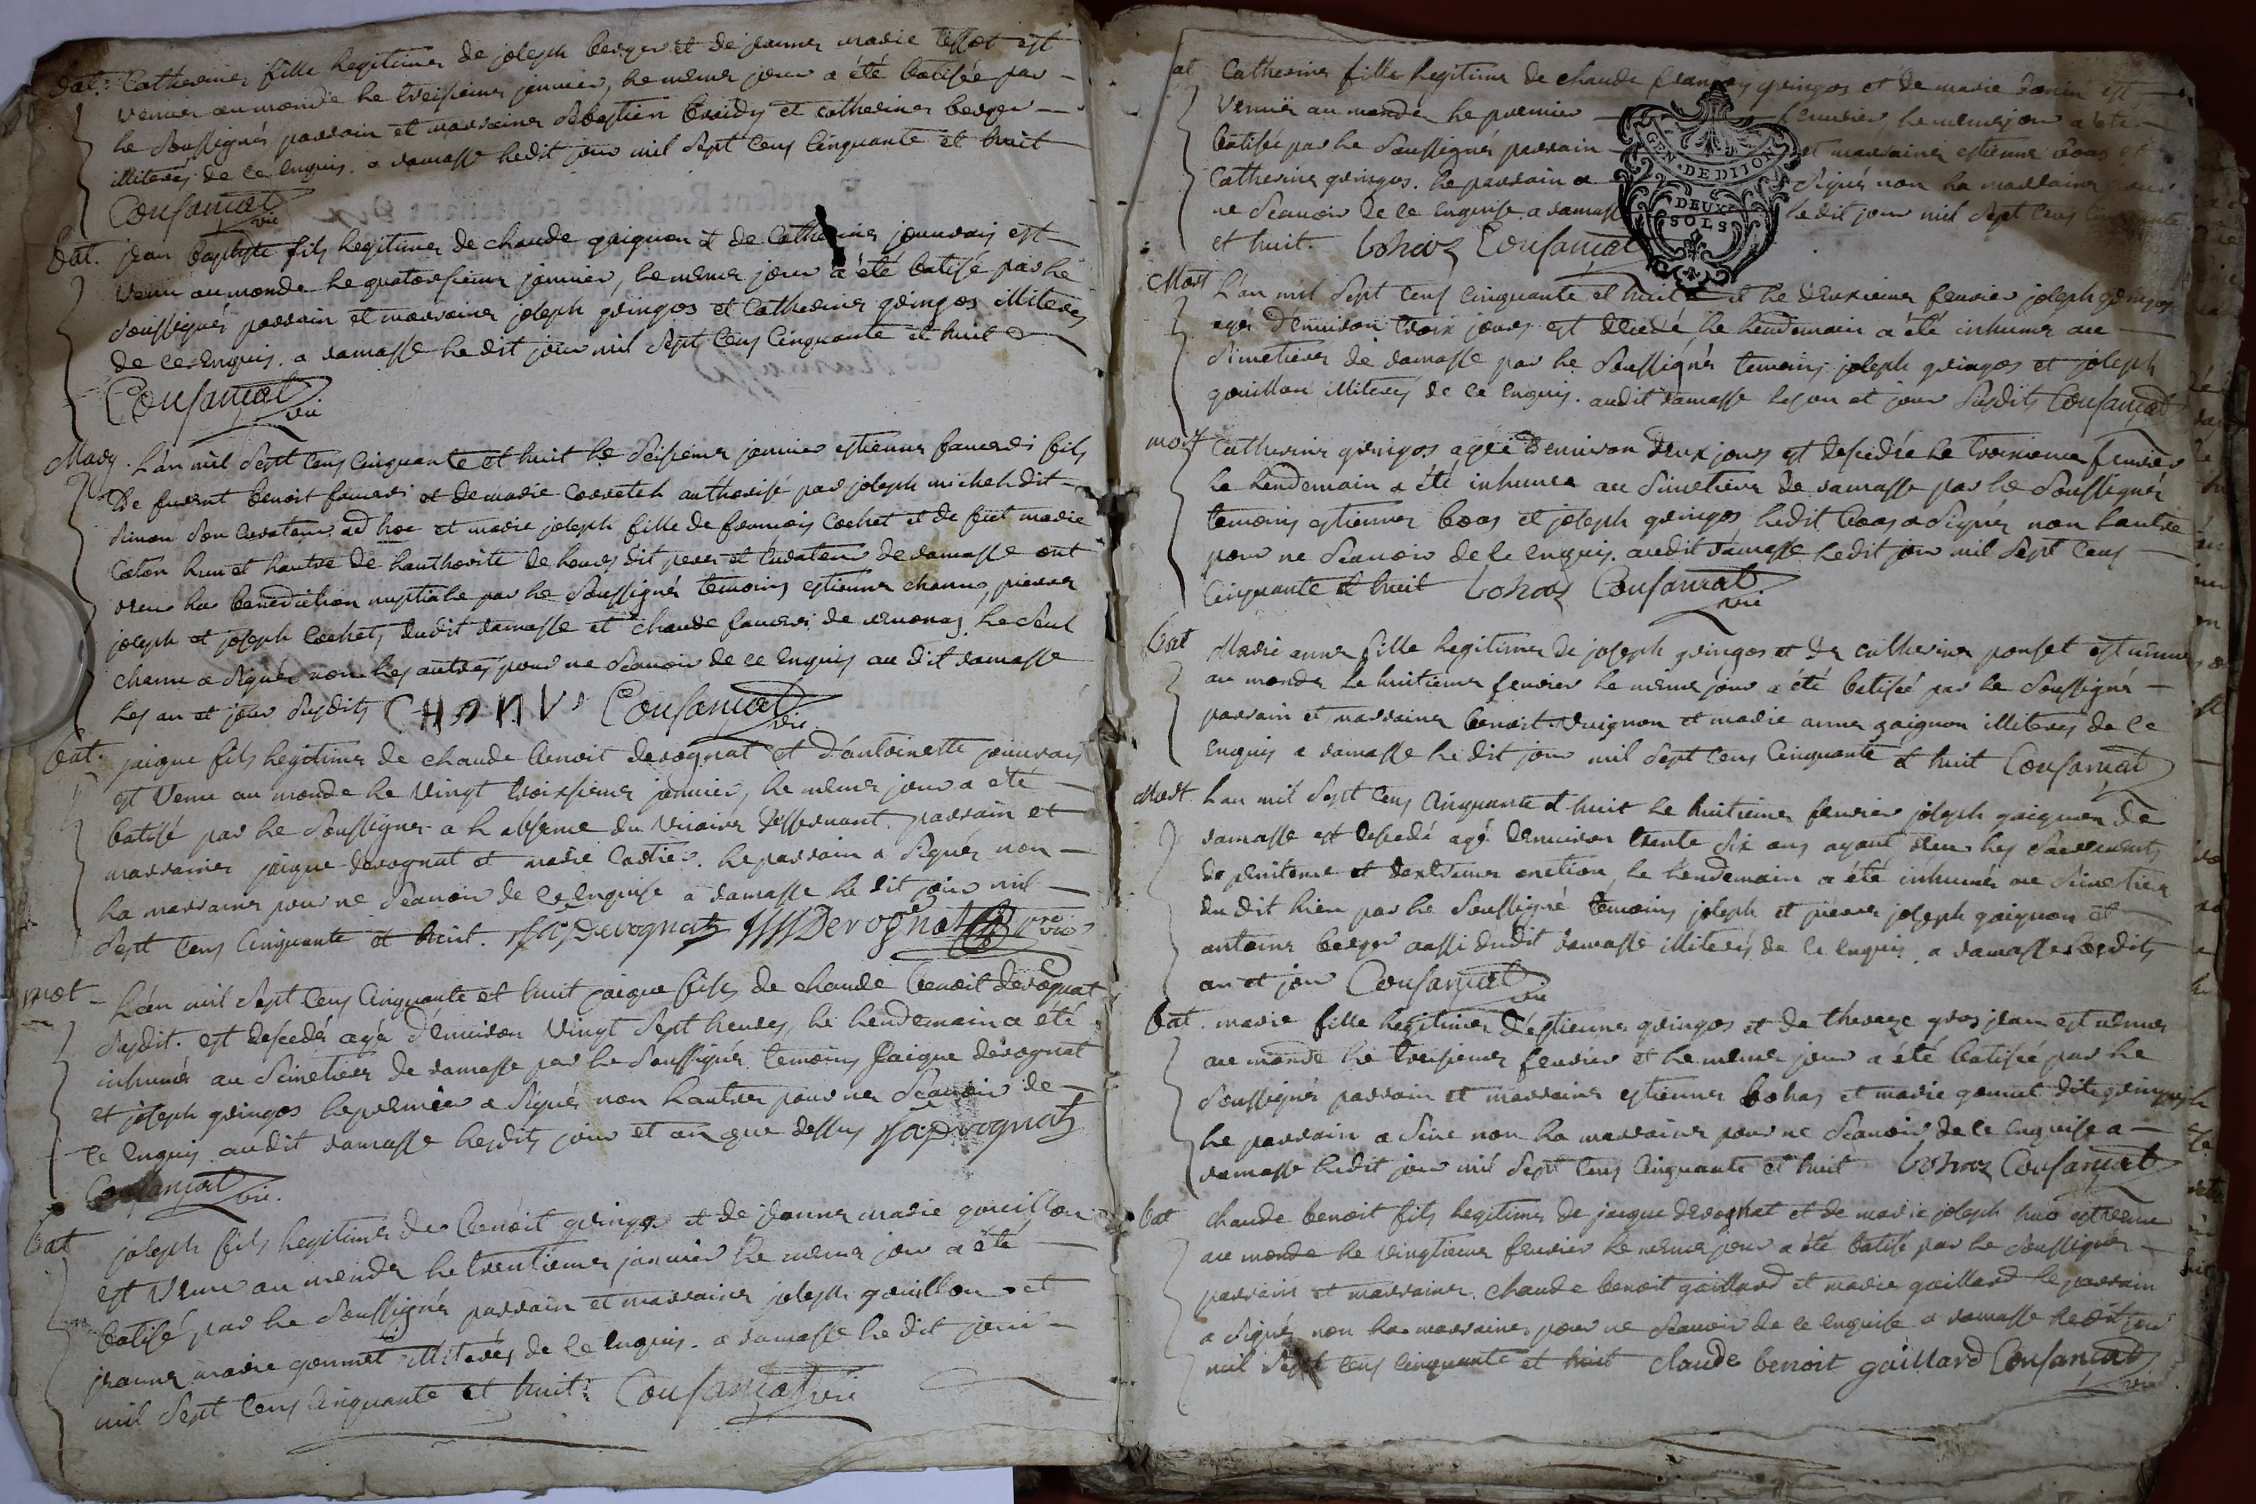 bat. Catherine fille legitime de joseph berger et de jeanne marie tissot est
venue au monde le treisieme janvier, le meme jour a été batisée par
le soussigné parrain et marraine sebastien braidy et catherine berger
illiterés de ce enquis. a ramasse ledit jour mil sept cens cinquante et huit
Consançat vic
bat. jean baptiste fils legitime de claude gaignon et de Catherine jouvray est
venu au monde le quatorsieme janvier, le meme jour a été batisé par le
soussigné parrain et marraine joseph gringos et Catherine gringos illiterés
de ce enquis. a ramasse ledit jour mil sept cens cinquante et huit
Consançat vic
Mary. L'an mil sept cens cinquante et huit le seisieme janvier estienne famerdi fils
de fuent benoit fameri et de marie corretel authorisé par joseph michel dit
simon son curateur ad hoc et marie joseph fille de francois cochet et de fuet marie
caton l'un et l'autre de l'authorité de leurs dit pere et curateur de ramasse ont
receu la benediction nuptiale par le soussigné temoins estienne channu, pierre
joseph et joseph cochet, dudit ramasse et claude fameri de verjonas. le seul
channu a signé non les autres pour ne scauoir de ce enquis au dit ramasse
les an et jour susdits CHANVS Consançat vic
bat. jaique fils legitime de claude benoit derognat et d'antoinette jouvray
est venu au monde le vingt troisieme janvier, le meme jour a été
batisé par le soussigné a l'absence du vicaire desservant. parrain et
marraine jaique derognat et marie cartier. le parrain a signé non
la marraine pour ne scauoir de ce enquise a ramasse le dit jour mil
sept cens cinquante et huit. Ja Derognat Derognat
mort L'an mil sept cens cinquante et huit jaique fils de claude benoit derognat
susdit. est decedé agé d'enuiron vingt sept heures, le lendemain a été
inhumé au simetiere de ramasse par le soussigné temoins jaique derognat
et joseph gringos le premier a signé non l'autre pour ne scauoir de
ce enquis audit ramasse lesdits jour et an que dessus Ja Derognat
Consançat vic.
bat joseph fils legitime de benoit gringos et de jeanne marie gouillon
est venu au monde le trentieme janvier le meme jour a été
batisé par le soussigné parrain et marraine joseph gouillon et
jeanne marie gommet illiterés de ce enquis. a ramasse le dit jour
mil sept cens cinquante et huit. Consançat vic
at Catherine fille legitime de claude francoy gringos et de marie est
venüe au monde le premier feurier, le meme jour a été
batisée par le soussigné parrain et marraine estienne boas et
Catherine gringos. le parrain a signé non la marraine pour
ne scauoir de ce enquise a ramasse ledit jour mil sept cens cinquante
et huit. bohas Consançat
GEN. DE DIJON
DEUX
SOLS
Mort L'an mil sept cens cinquante et huit et le deuxieme feurier joseph gringos
agé d'enuiron trois jours est decedé le lendemain a été inhumé au
simetiere de ramasse par le soussigné temoins joseph gringos et joseph
gouillon illiterés de ce enquis. audit ramasse les an et jour susdits Consançat
mort Catherine gringos agée d'enuiron deux jours est decedée le troisieme feurier
le lendemain a été inhumée au simetiere de ramasse par le soussigné
temoins estienne boas et joseph gringos ledit boas a signé non l'autre
pour ne scauoir de ce enquis. audit ramasse ledit jour mil sept cens
cinquante et huit bohas Consançat vic
bat Marie anne fille legitime de joseph gringos et de catherine ponset est venue
au monde le huitieme feurier le meme jour a été batisée par le soussigné
parrain et marraine benoit druignon et marie anne gaignon illiterés de ce
enquis a ramasse le dit jour mil sept cens cinquante et huit Consançat
Mort. L'an mil sept cens cinquante et huit le huitieme feurier joseph gaignon de
ramasse est decedé agé d'enuiron trente six ans ayant receu les sacrements
de penitence et d'extreme onction, le lendemain a été inhumé au simetiere
du dit lieu par le soussigné temoins joseph et pierre joseph gaignon et
antoine berger aussi dudit ramasse illiterés de ce enquis. a ramasse lesdits
an et jour Consançat vic
bat. marie fille legitime d'estienne gringos et de therese gros jean est venue
au monde le treisieme feurier et le meme jour a été batisée par le
soussigné parrain et marraine estienne bohas et marie gomet dite gringos
le parrain a siné non la marraine pour ne scauoir de ce enquise a
ramasse ledit jour mil sept cens cinquante et huit bohas Consançat
bat claude benoit fils legitime de jaique derognat et de marie joseph est venu
au monde le vingtieme feurier le meme jour a été batisé par le soussigné
parrain et marraine. claude benoit gaillard et marie gaillard le parrain
a signé non la marraine pour ne scauoir de ce enquise a ramasse ledit jour
mil sept cens cinquante et huit claude benoit gaillard Consançat vic